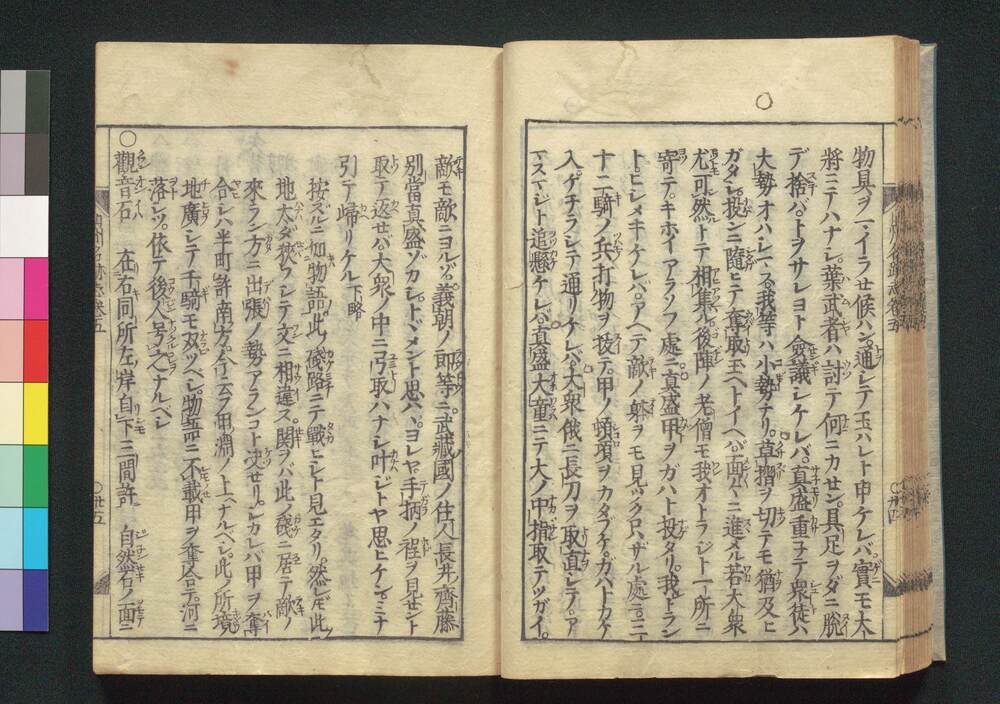 物具ヲ一イラセ候ハン。通シテ玉ハレト申ケレバ。實モ大
將ニテハナシ。葉武者ハ討テ何ニカせン。具足ヲダニ脱
デ捨バ。トヲサレヨト僉議シケレバ。真盛重子テ衆徒ハ
大勢オハシマス。我等ハ小勢ナリ。草摺ヲ切テモ猶及ヒ
ガタシ。投ンニ隨ヒテ奪取玉ヘトイヘバ。面々ニ進メル若大衆
尤可然トテ相集ル。後陣ノ老僧モ我オトラジト一所ニ
寄テ。キホイアラソフ處ニ。真盛甲ヲガハト投タリ。我トラン
ト。ヒシメキケレバ。アヘテ敵ノ躰ヲモ見ツクロハザル處ニ。三
十二騎ノ兵打物ヲ抜テ。甲ノ錣ヲカタブケ。カハトカケ
入。ケチラシテ通リケレバ。大衆俄ニ長刀ヲ取直シテ。ア
マスマジト追懸ケレバ。真盛大童ニテ大ノ中指取テツガイ。
○卅四
敵モ敵ニヨルゾ。義朝ノ郎等ニ。武藏國ノ住人長井ノ齊藤
別當真盛ゾカシ。トヾメント思ハヾヨレヤ。手柄ノ程ヲ見せント
取テ返せバ。大衆ノ中ニ弓取ハナシ叶ジトヤ思ヒケン。ミナ
引テ歸リケル下略
按ズルニ如物語。此ノ碊路ニテ戰ヒシト見エタリ。然レモ此ノ
地太ダ狹フシテ文ニ相違ス。関ヲバ此ノ碊ニ居テ。敵ノ
來ラン方ニ出張ノ勢アランコト決せリ。シカレバ甲ヲ奪
合シハ半町許南方。今云フ甲淵ノ上ヘナルベシ。此ノ所境
地廣シテ千騎モ双ツベシ。物語ニ不載甲ヲ奪合テ。河ニ
落シツ。依テ後人号之ナルベシ
○觀音石 在右同所左岸自下三間許 自然石ノ面ニ
○卅五